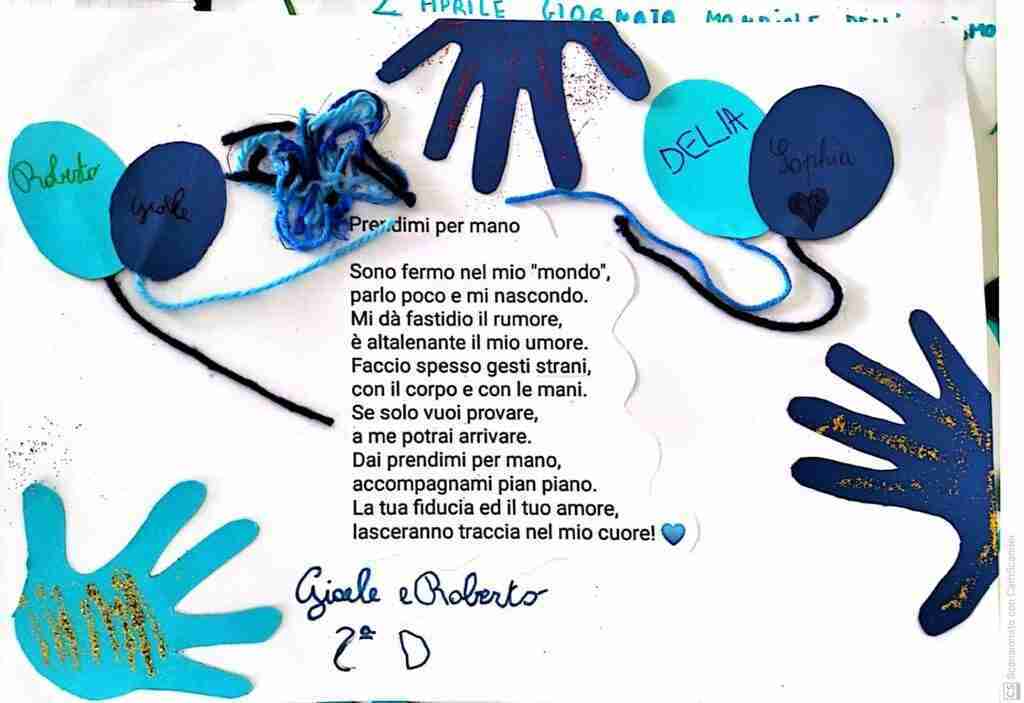 2 APRILE GIORNATA MONDIALE DELL'
Roberto
Gisele
DELIA
Sophia
Prendimi per mano
Sono fermo nel mio "mondo",
parlo poco e mi nascondo.
Mi dà fastidio il rumore,
è altalenante il mio umore.
Faccio spesso gesti strani,
con il corpo e con le mani.
Se solo vuoi provare,
a me potrai arrivare.
Dai prendimi per mano,
accompagnami pian piano.
La tua fiducia ed il tuo amore,
lasceranno traccia nel mio cuore! 💙
Gisele e Roberto
2ª D
CS Scansionato con CamScanner